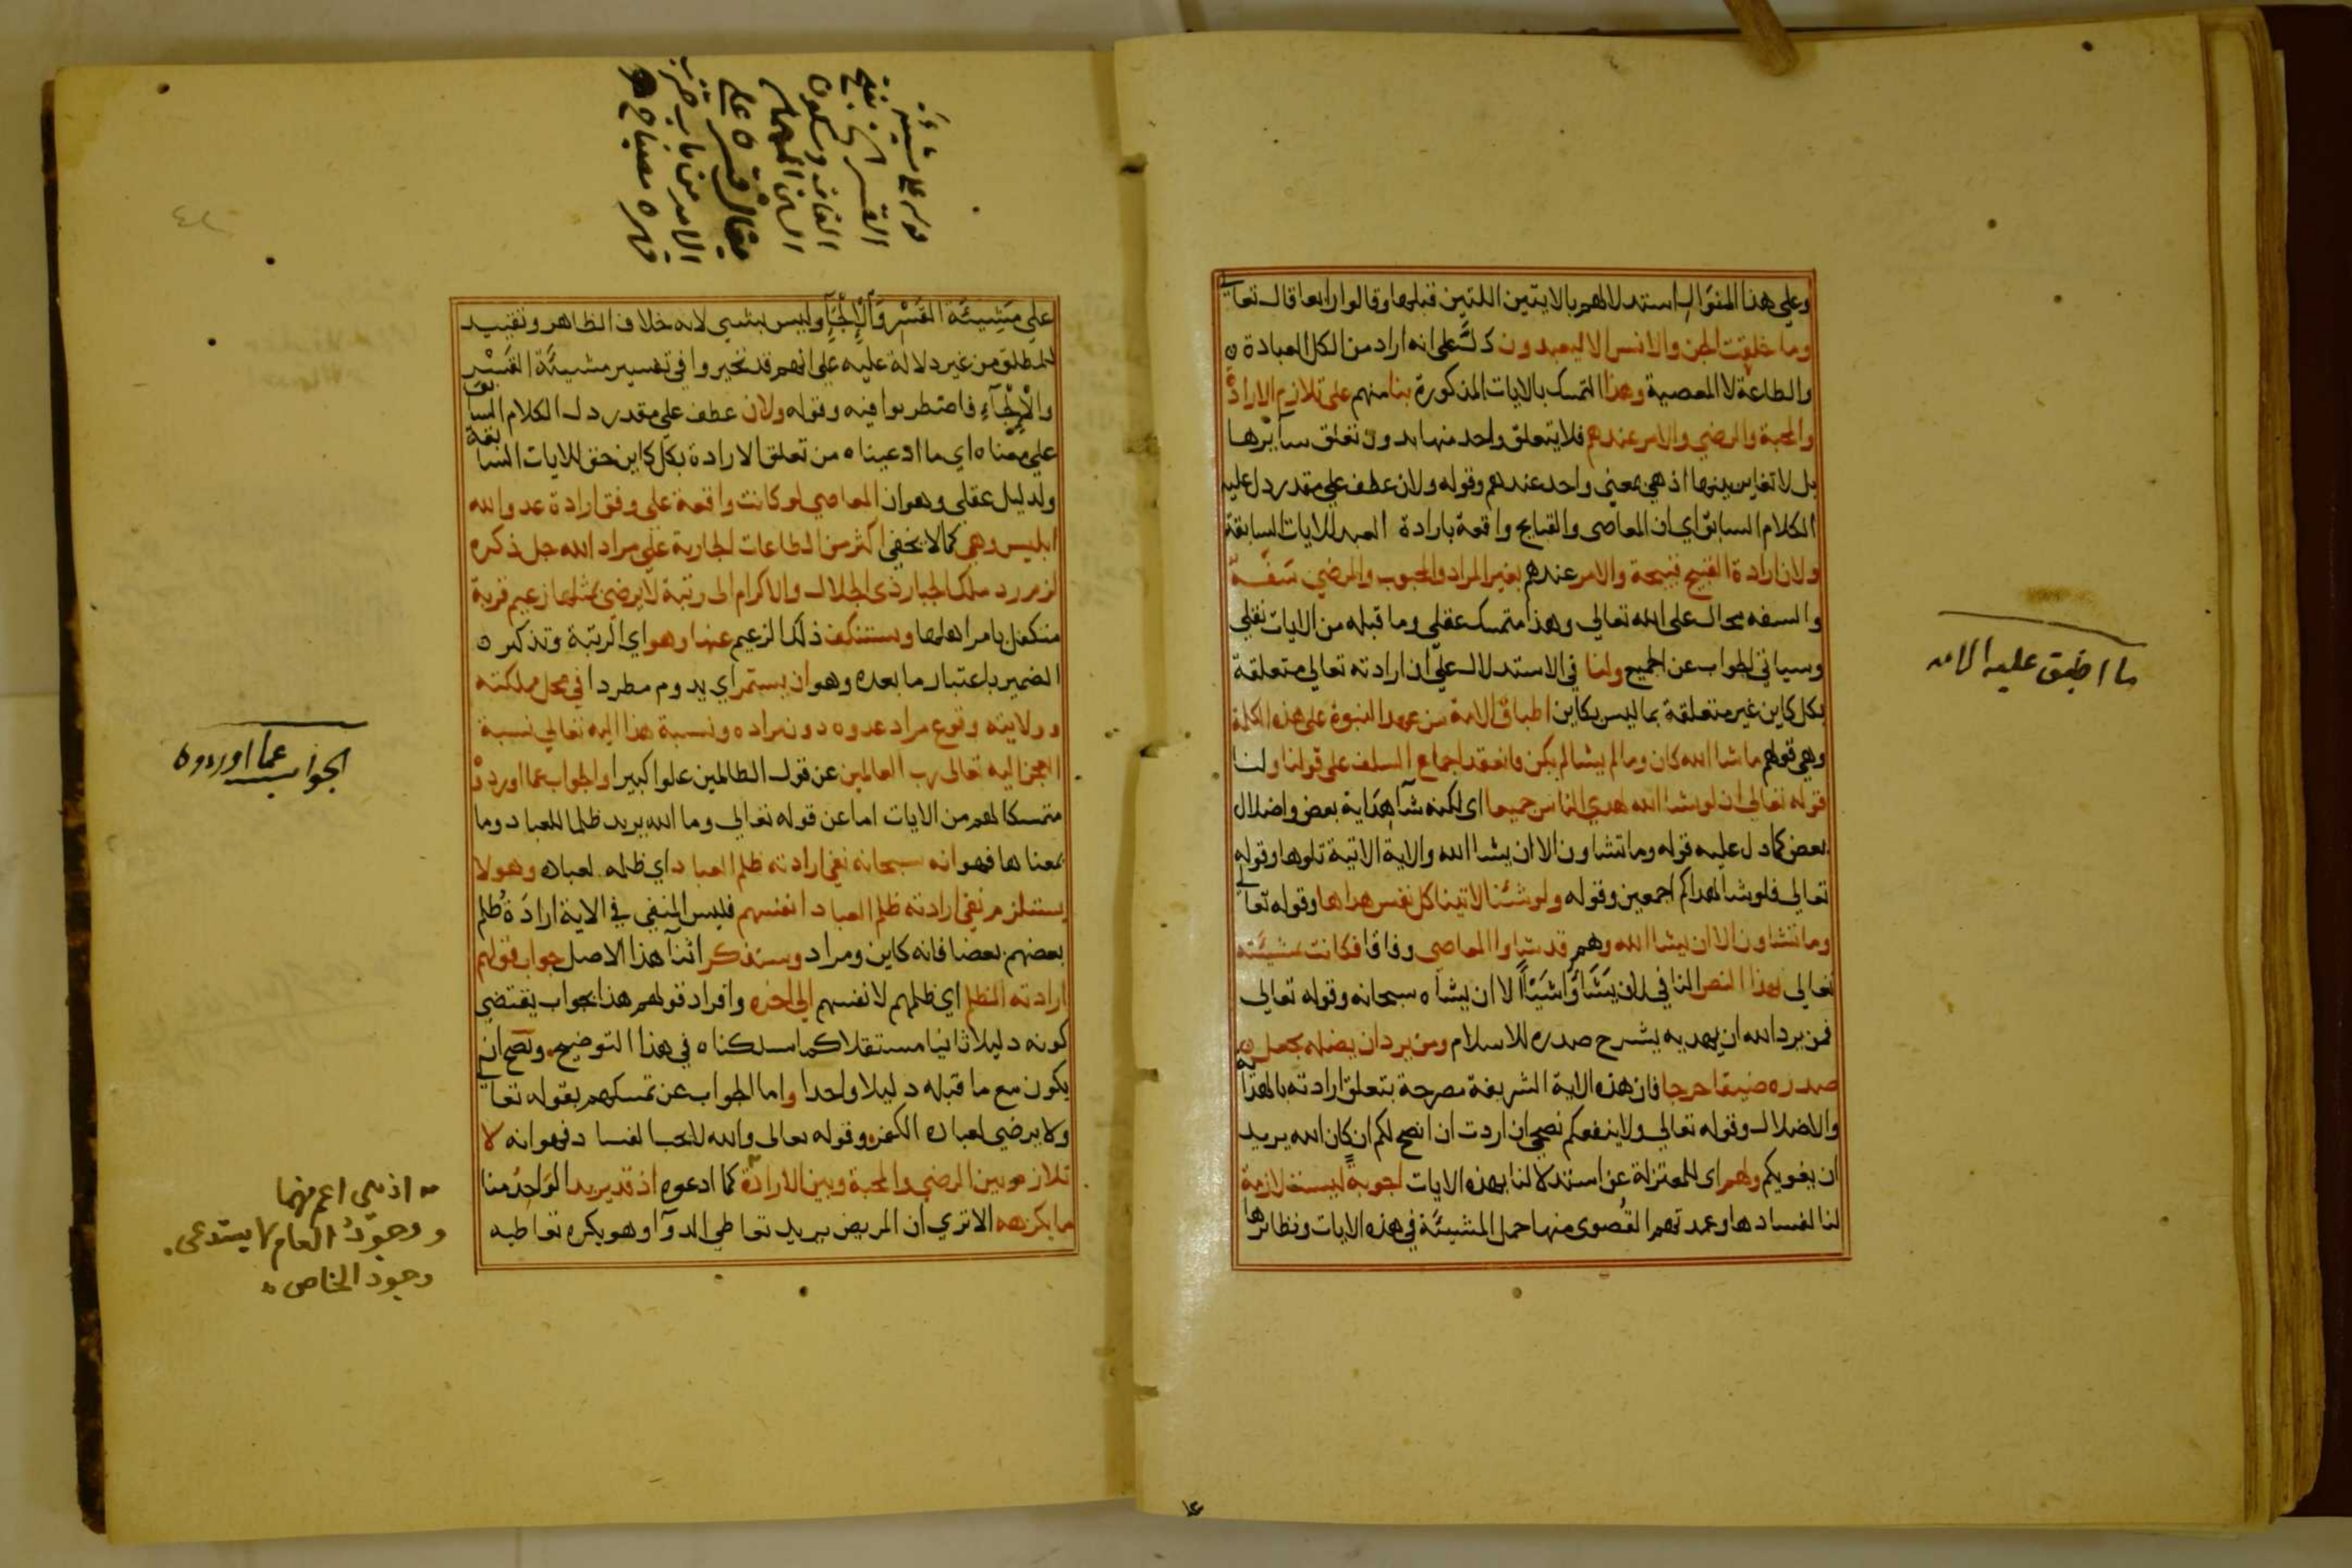 وعلي هذا المنوال استدلالهم بالايتين اللتين قبلها وقالوا رابعا قال تعالي
وما خلقت الجن والانس الا ليعبدون دل علي انه اراد من الكل العبادة
والطاعة لا المعصية وهذا التمسك بالايات المذكورة بنا منهم علي تلازم الارادة
والمحبة والرضي والامر عندهم فلا يتعلق واحد منها بدون تعلق سآئرها
بل لا تغاير بينها اذ هي بمعني واحد عندهم وقوله ولان عطف علي مقدر دل عليه
الكلام السابق اي ان المعاصي والقبايح واقعة بارادة العبد للايات السابقة
ولان ارادة القبيح قبيحة والامر عندهم بغير المراد والمحبوب والمرضي سفه
والسفه محال علي الله تعالي وهذا متمسك عقلي وما قبله من الايات نقلي
وسياتي الجواب عن الجميع ولنا في الاستدلال علي ان ارادته تعالي متعلقة
بكل كاين غير متعلقة بما ليس بكاين اطباق الامة من عهد النبوة علي هذه الكلمة
وهي قولهم ما شا الله كان وما لم يشا لم يكن فانعقد اجماع السلف علي قولنا ولنا
قوله تعالي ان لو يشا الله لهدي الناس جميعا اي لكنه شآ هداية بعض واضلال
بعض كما دل عليه قوله وما تشاون الا ان يشا الله والاية الاتية تلوها وقوله
تعالي فلو شا لهداكم اجمعين وقوله ولو شئنا لاتينا كل نفس هداها وقوله تعالي
وما تشاون الا ان يشا الله وهم قد شاوا المعاصي وفاقا فكانت بمشيئته
تعالي بهذا النص النافي لان يشآوا شيئا الا ان يشاه سبحانه وقوله تعالي
فمن يرد الله ان يهديه يشرح صدره للاسلام ومن يرد ان يضله يجعل
صدره ضيقا حرجا فان هذه الاية الشريفة مصرحة بتعلق ارادته بالهداية
والاضلال وقوله تعالي ولا ينفعكم نصحي ان اردت ان انصح لكم ان كان الله يريد
ان يغويكم ولهم اي للمعتزلة عن استدلالنا بهذه الايات اجوبة ليست لازمة
لنا لفسادها وعمدتهم القصوي منها حمل المشيئة في هذه الايات ونظائرها
ما اطبق عليه الامه
علي مشيئة القسر والالجآ وليس بشي لانه خلاف الظاهر وتقييد
للمطلق من غير دلالة عليه علي انهم قد تحيروا في تفسير مشيئة القسر
والالجآء فاضطربوا فيه وقوله ولان عطف علي مقدر دل الكلام السابق
علي معناه اي ما ادعيناه من تعلق الارادة بكل كاين حق للايات السابقة
ولدليل عقلي وهو ان المعاصي لو كانت واقعة علي وفق ارادة عدو الله
ابليس وهي كما لا يخفي اكثر من الطاعات الجارية علي مراد الله جل ذكره
لزم رد ملك الجبار ذي الجلال والاكرام الي رتبة لا يرضي بمثلها زعيم قرية
متكفل بامر اهلها ويستنكف ذلك الزعيم عنها وهو اي الرتبة وتذكير
الضمير باعتبار ما بعده وهو ان يستمر اي يدوم مطردا في محل مملكته
وولايته وقوع مراد عدوه دون مراده ونسبة هذا اليه تعالي نسبة
العجز اليه تعالي رب العالمين عن قول الظالمين علوا كبيرا والجواب عما اوردوه
متمسكا لهم من الايات اما عن قوله تعالي وما الله يريد ظلما للعباد وما
بمعناها فهو انه سبحانه نفي ارادته ظلم العباد اي ظلمه لعباده وهو لا
يستلزم نفي ارادته ظلم العباد انفسهم فليس المنفي في الاية ارادة ظلم
بعضهم بعضا فانه كاين ومراد وسنذكر اثنآ هذا الاصل جواب قولهم
ارادته الظلم اي ظلمهم لانفسهم الي اخره وافراد قولهم هذا بجواب يقتضي
كونه دليلا ثانيا مستقلا كما سلكناه في هذا التوضيح ويصح ان
يكون مع ما قبله دليلا واحدا واما الجواب عن تمسكهم بقوله تعالي
ولا يرضي لعباده الكفر وقوله تعالي والله لا يحب الفساد فهو انه لا
تلازم بين الرضي والمحبة وبين الارادة كما ادعوه اذ قد يريد الواحد منا
ما يكرهه الا تري ان المريض يريد تعاطي الدوآ وهو يكره تعاطيه
القسر
القاف وسكون
السين المهملة
يقال قسره علي
الامر من باب ضرب
قهره مصباح
الجواب عما اوردوه
اذ هي اعم منهما
ووجود العام لا يستدعي
وجود الخاص